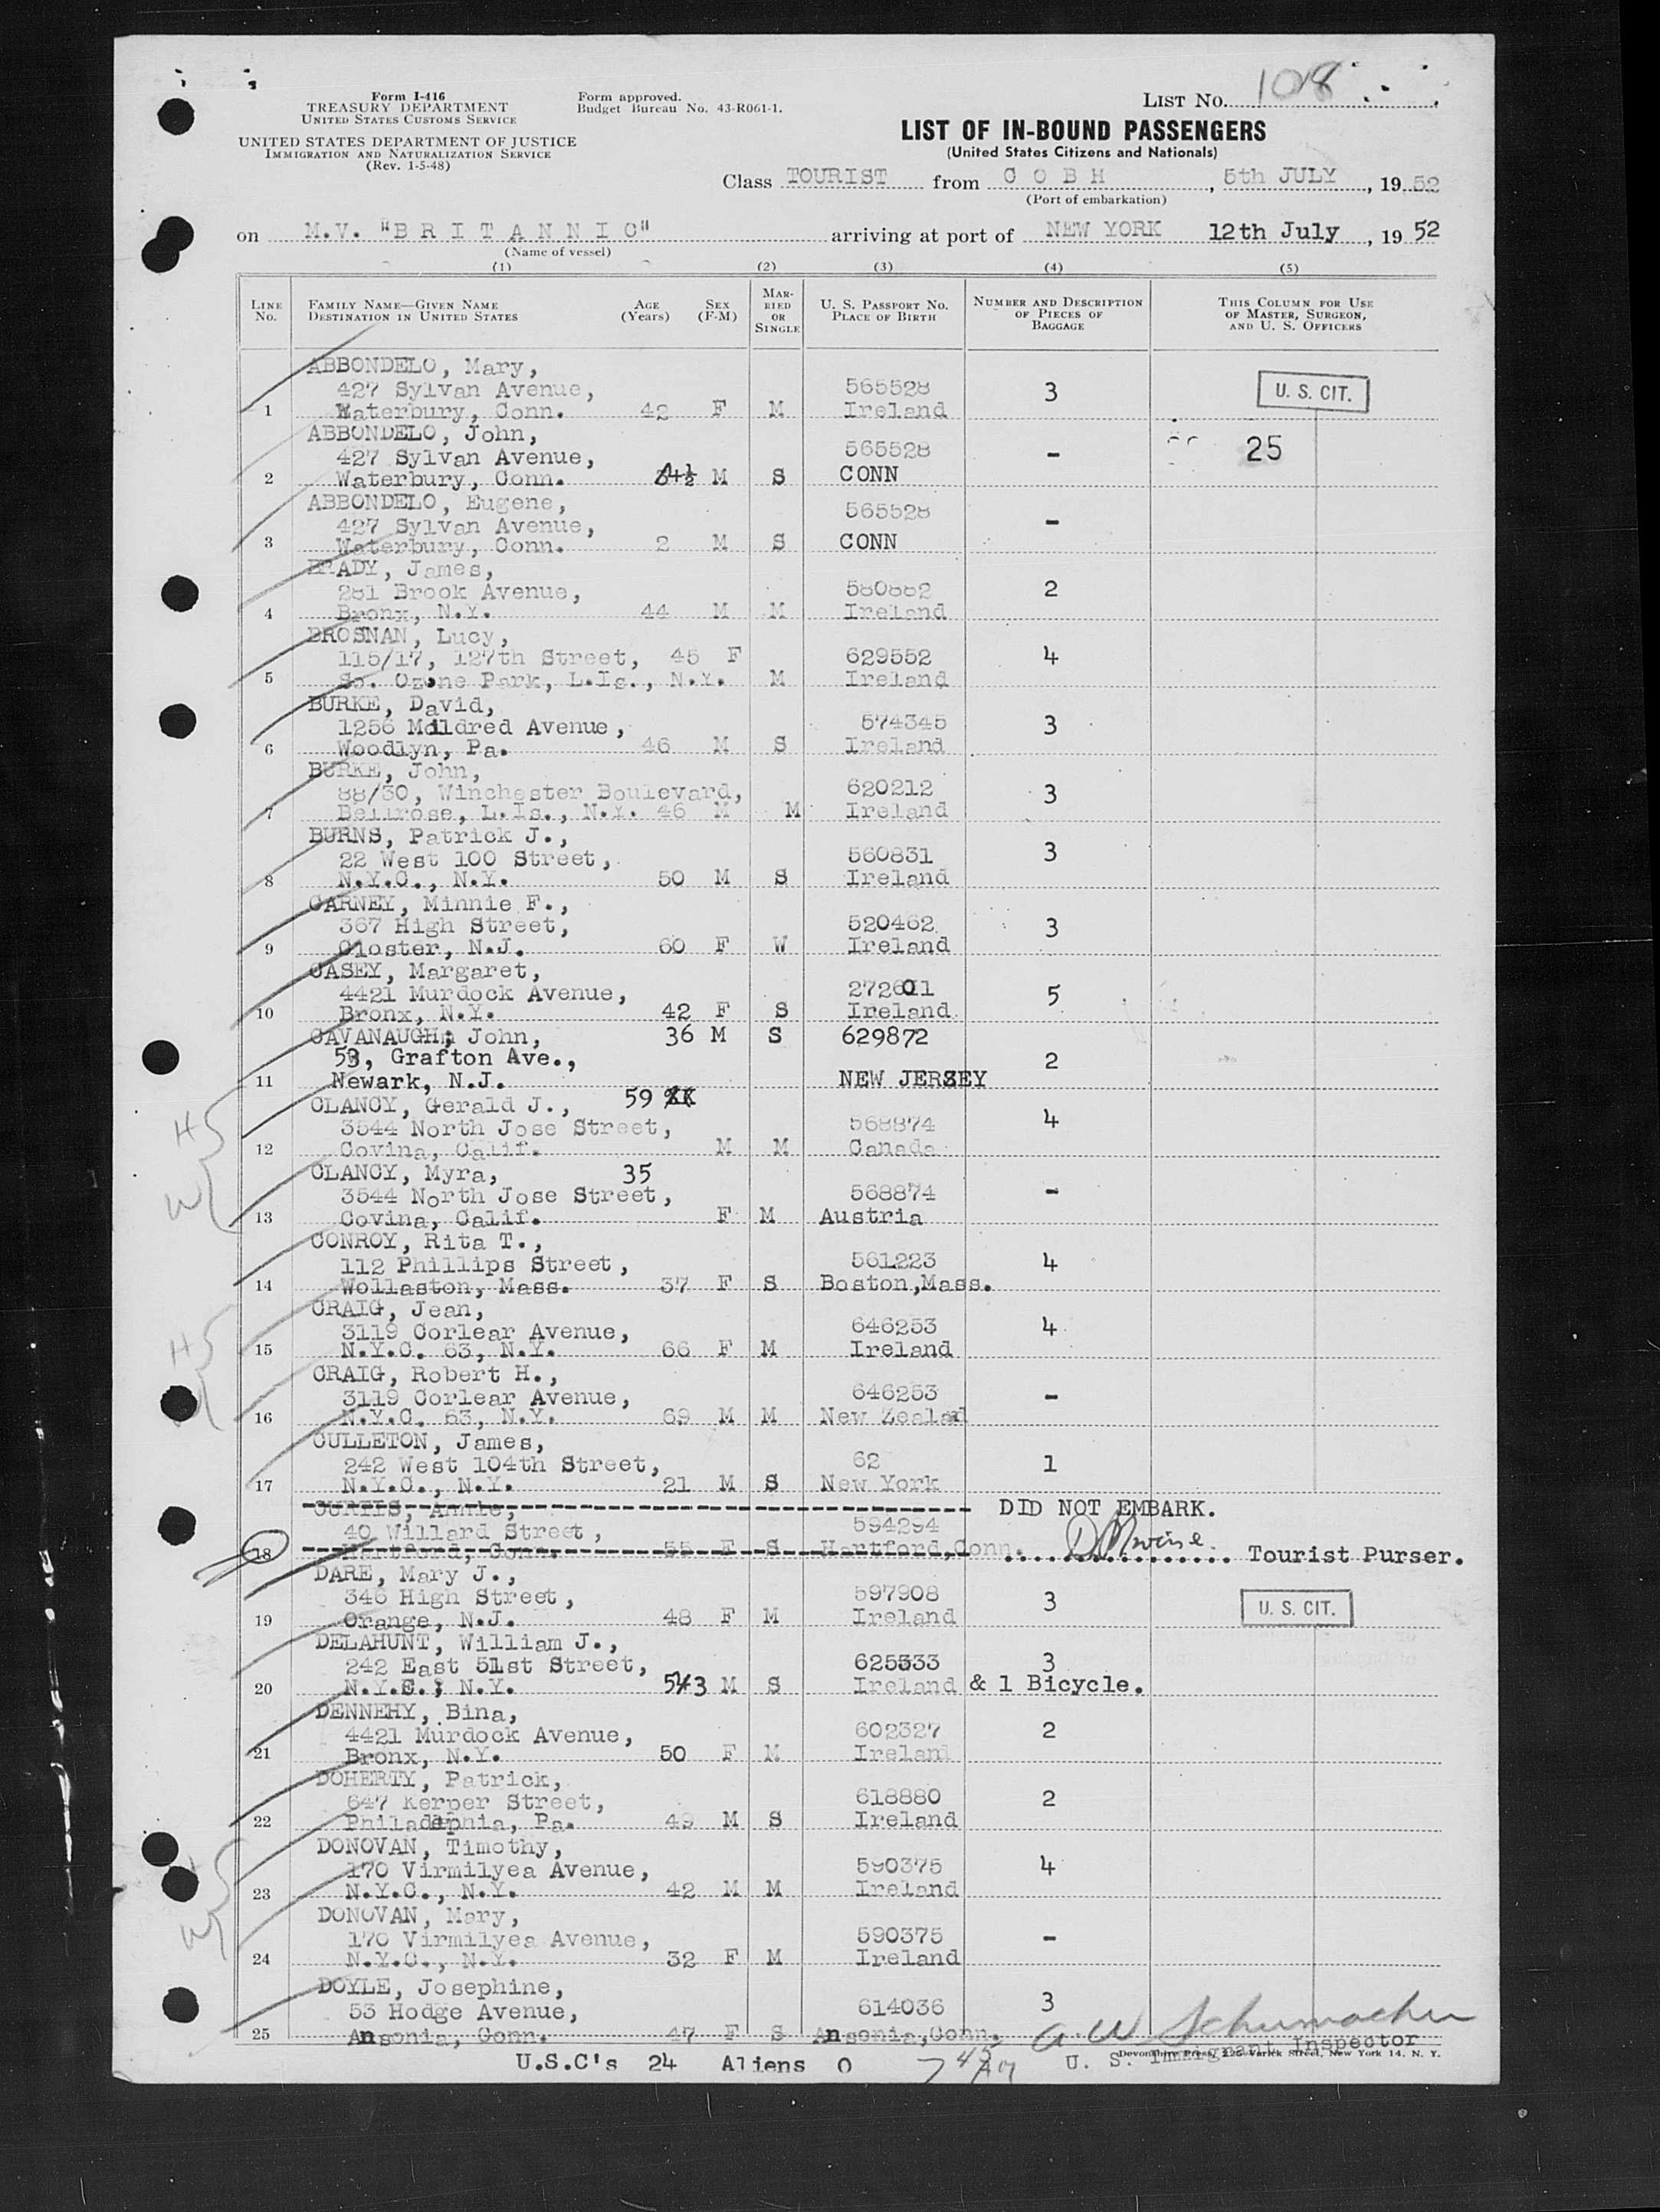 Form I-416
TREASURY DEPARTMENT
UNITED STATES CUSTOMS SERVICE
UNITED STATES DEPARTMENT OF JUSTICE
IMMIGRATION AND NATURALIZATION SERVICE
(Rev. 1-5-48)
Form approved.
Budget Bureau No. 43-R061-1.
LIST NO. 108
LIST OF IN-BOUND PASSENGERS
(United States Citizens and Nationals)
Class TOURIST from C O B H, 5th JULY, 19 52
(Port of embarkation)
on M.V. "B R I T A N N I C" arriving at port of NEW YORK 12th July, 19 52
(Name of vessel)
(1) (2) (3) (4) (5)
LINE No. FAMILY NAME—GIVEN NAME DESTINATION IN UNITED STATES AGE (Years) SEX (F-M) MARRIED OR SINGLE U. S. PASSPORT NO. PLACE OF BIRTH NUMBER AND DESCRIPTION OF PIECES OF BAGGAGE THIS COLUMN FOR USE OF MASTER, SURGEON, AND U. S. OFFICERS
ABBONDELO, Mary,
427 Sylvan Avenue, 565528 3 U. S. CIT.
1 Waterbury, Conn. 42 F M Ireland
ABBONDELO, John,
427 Sylvan Avenue, 565528 - 25
2 Waterbury, Conn. 4½ M S CONN
ABBONDELO, Eugene,
427 Sylvan Avenue, 565528 -
3 Waterbury, Conn. 2 M S CONN
BRADY, James,
281 Brook Avenue, 580882 2
4 Bronx, N.Y. 44 M M Ireland
BROSNAN, Lucy,
115/17, 127th Street, 45 F 629552 4
5 So. Ozone Park, L.Is., N.Y. M Ireland
BURKE, David,
1256 Mildred Avenue, 574345 3
6 Woodlyn, Pa. 46 M S Ireland
BURKE, John,
88/30, Winchester Boulevard, 620212 3
7 Bellrose, L.Is., N.Y. 46 M M Ireland
BURNS, Patrick J.,
22 West 100 Street, 560831 3
8 N.Y.C., N.Y. 50 M S Ireland
CARNEY, Minnie F.,
367 High Street, 520462 3
9 Closter, N.J. 60 F W Ireland
CASEY, Margaret,
4421 Murdock Avenue, 272601 5
10 Bronx, N.Y. 42 F S Ireland
CAVANAUGH, John, 36 M S 629872
53, Grafton Ave., 2
11 Newark, N.J. NEW JERSEY
CLANCY, Gerald J., 59
3544 North Jose Street, 568874 4
12 Covina, Calif. M M Canada
CLANCY, Myra, 35
3544 North Jose Street, 568874 -
13 Covina, Calif. F M Austria
CONROY, Rita T.,
112 Phillips Street, 561223 4
14 Wollaston, Mass. 37 F S Boston,Mass.
CRAIG, Jean,
3119 Corlear Avenue, 646253 4
15 N.Y.C. 63, N.Y. 66 F M Ireland
CRAIG, Robert H.,
3119 Corlear Avenue, 646253 -
16 N.Y.C. 63, N.Y. 69 M M New Zealand
CULLETON, James,
242 West 104th Street, 62 1
17 N.Y.C., N.Y. 21 M S New York
CURTIS, Annie, DID NOT EMBARK.
40 Willard Street, 594294
18 Hartford, Conn. 55 F S Hartford,Conn. Tourist Purser.
DARE, Mary J.,
346 High Street, 597908 3 U. S. CIT.
19 Orange, N.J. 48 F M Ireland
DELAHUNT, William J.,
242 East 51st Street, 625333 3
20 N.Y.C., N.Y. 543 M S Ireland & 1 Bicycle.
DENNEHY, Bina,
4421 Murdock Avenue, 602327 2
21 Bronx, N.Y. 50 F M Irelan
DOHERTY, Patrick,
647 Kerper Street, 618880 2
22 Philadelphia, Pa. 49 M S Ireland
DONOVAN, Timothy,
170 Virmilyea Avenue, 590375 4
23 N.Y.C., N.Y. 42 M M Ireland
DONOVAN, Mary,
170 Virmilyea Avenue, 590375 -
24 N.Y.C., N.Y. 32 F M Ireland
DOYLE, Josephine,
53 Hodge Avenue, 614036 3
25 Ansonia, Conn. 47 F S Ansonia,Conn.
A. W Schumacher
U.S.C's 24 Aliens 0 U. S. Immigrant Inspector
Devonshire Press, 225 Varick Street, New York 14, N. Y.